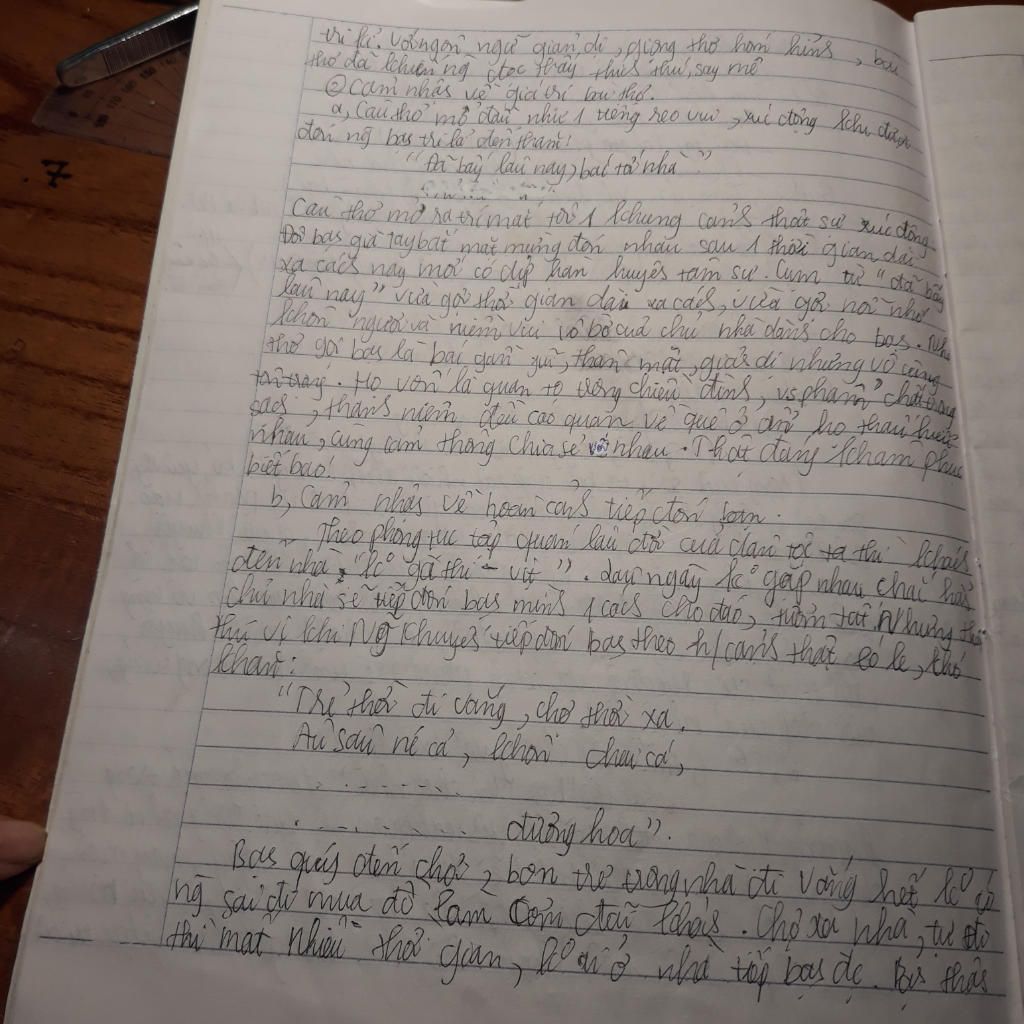 tri kỉ. Với ngôn ngữ giản dị, giọng thơ hóm hỉnh, bài
thơ đã khiến ng đọc thấy thích thú, say mê
② Cảm nhận về giá trị bài thơ.
a, Câu thơ mở đầu như 1 tiếng reo vui, xúc động khi được
đón ng bạn tri kỉ đến thăm:
"Đã bấy lâu nay, bác tới nhà"
Câu thơ mở ra trc mắt tôi 1 khung cảnh thật sự xúc động
Đôi bạn già tay bắt mặt mừng đón nhau sau 1 thời gian dài
xa cách nay mới có dịp hàn huyên tâm sự. Cụm từ "đã bấy
lâu nay" vừa gợi thời gian dài xa cách, vừa gợi nỗi nhớ
khôn nguôi và niềm vui vô bờ của chủ nhà dành cho bạn. Nhà
thơ gọi bạn là bác gần gũi, thân mật, giản dị nhưng vô cùng
. Họ vốn là quan to trong chiều đình, vs phẩm chất trong
sạch, thanh niêm đều cáo quan về quê ở ẩn họ thấu hiểu
nhau, cùng cảm thông chia sẻ với nhau. Thật đáng khâm phục
biết bao!
b, Cảm nhận về hoàn cảnh tiếp đón bạn.
Theo phong tục tập quán lâu đời của dân tộc ta thì khách
đến nhà "kº gà thì vịt". Lâu ngày kº gặp nhau chắc hẳn
chủ nhà sẽ tiếp đón bạn mình 1 cách chu đáo, tươm tất. Nhưng thật
thú vị khi Ng Khuyến tiếp đón bạn theo h/cảnh thật éo le, khó
khăn:
"Trẻ thời đi vắng, chợ thời xa,
Ao sâu nc cả, khôn chài cá,
. . . . . .
. . . . . . . . đương hoa".
Bạn quý đến chơi, bọn trẻ trong nhà đi vắng hết kº có
ng sai đi mua đồ làm cơm đãi khách. Chợ xa nhà, tự đi
thì mất nhiều thời gian, kº ai ở nhà tiếp bạn đc. Bạn thân